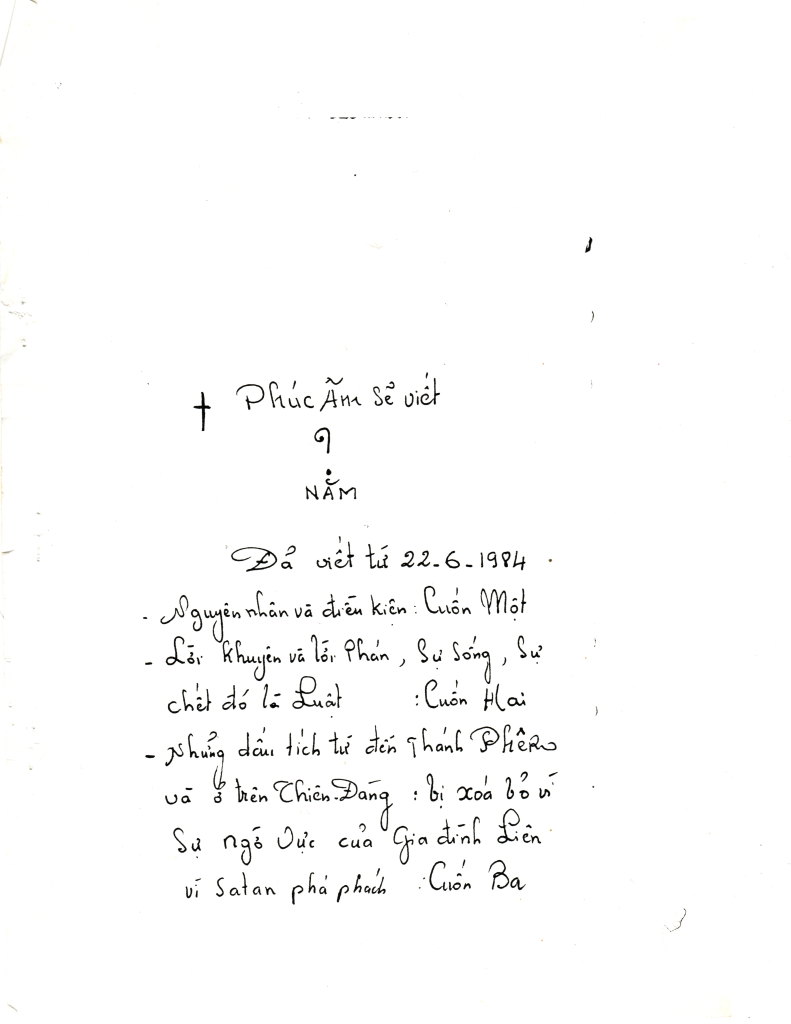 † Phúc Ẫm Sẽ viết
9
NẮM
Đả viết tứ 22-6-1984
- Nguyên nhân vã điến kiên: Cuốn Một
- Lới khuyên vã lới Phán, Sự Sống, Sự
chết đó lã Luất : Cuốn Hai
- Những dấu tích tứ đến Thánh Phêrô
vã ở trên Thiên-Đãng : bị xoá bỏ vĩ
Sự ngố Vực của Gia đĩnh Liên
vĩ Satan phá phách : Cuốn Ba